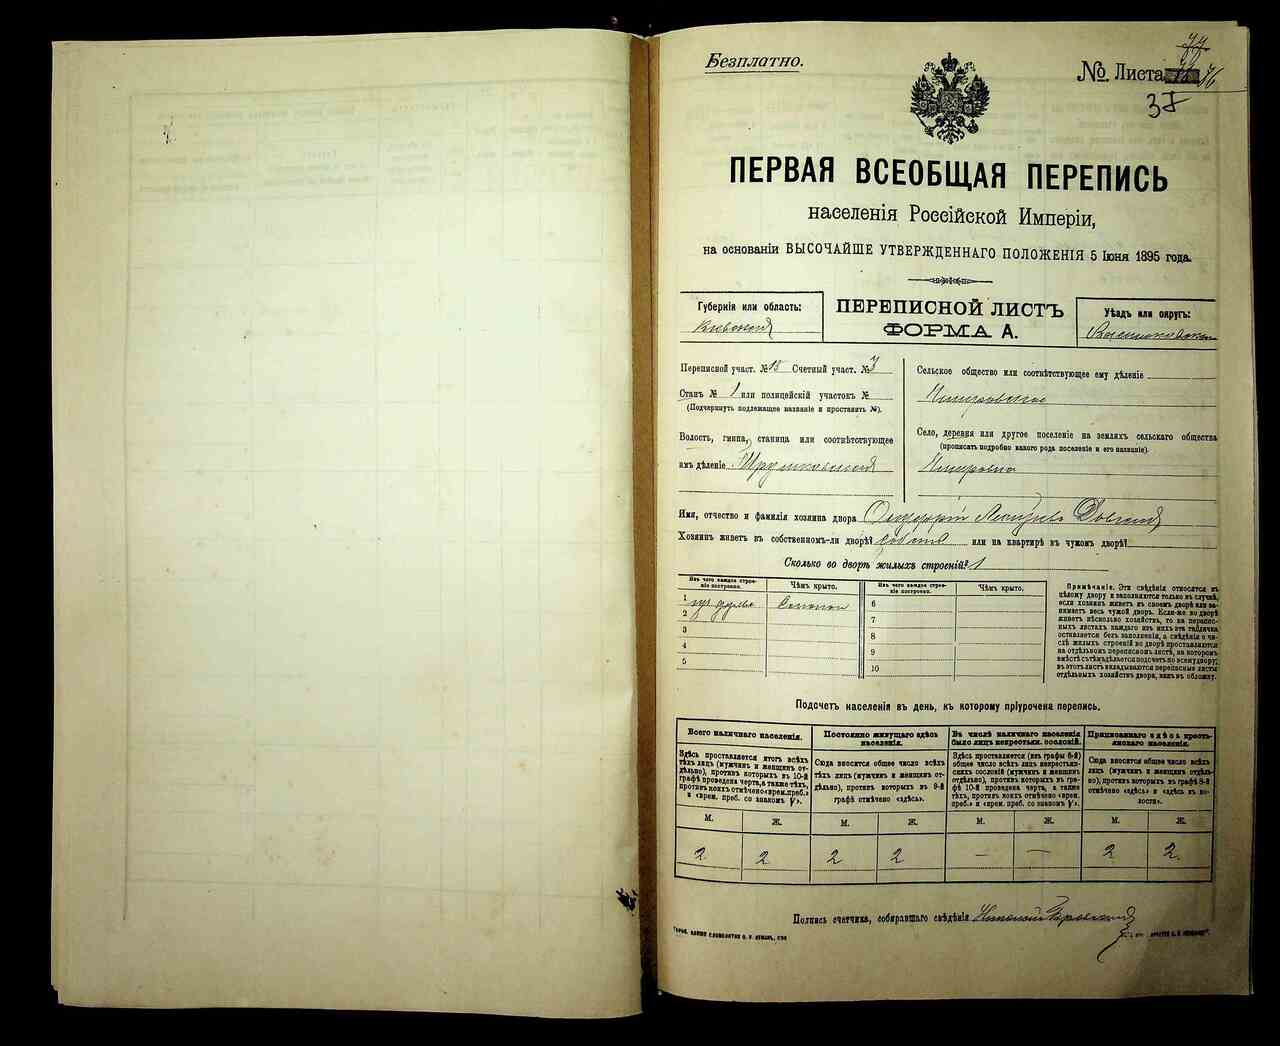 Безплатно.
№ Листа 76
37
ПЕРВАЯ ВСЕОБЩАЯ ПЕРЕПИСЬ
населенія Россійской Имперіи,
на основаніи ВЫСОЧАЙШЕ УТВЕРЖДЕННАГО ПОЛОЖЕНІЯ 5 Іюня 1895 года.
Губернія или область:
Кіевская
ПЕРЕПИСНОЙ ЛИСТЪ
ФОРМА А.
Уѣздъ или округъ:
Васильковскій
Переписной участ. № 15 Счетный участ. № 3
Станъ № 1 или полицейскій участокъ №
(Подчеркнуть подлежащее названіе и проставить №).
Волость, гмина, станица или соотвѣтствующее
имъ дѣленіе
Сельское общество или соотвѣтствующее ему дѣленіе
Село, деревня или другое поселеніе на земляхъ сельскаго общества
(прописать подробно какого рода поселеніе и его названіе).
Имя, отчество и фамилія хозяина двора
Хозяинъ живетъ въ собственномъ-ли дворѣ? или на квартирѣ въ чужомъ дворѣ?
Сколько во дворѣ жилыхъ строеній? 1
Изъ чего каждое строеніе построено.
Чѣмъ крыто.
Изъ чего каждое строеніе построено.
Чѣмъ крыто.
1 Соломой 6
2 7
3 8
4 9
5 10
Примѣчаніе. Эти свѣдѣнія относятся къ
цѣлому двору и заполняются только въ случаѣ,
если хозяинъ живетъ въ своемъ дворѣ или занимаетъ
весь чужой дворъ. Если-же во дворѣ
живетъ нѣсколько хозяйствъ, то на переписныхъ
листахъ каждаго изъ нихъ эта табличка
оставляется безъ заполненія, а свѣдѣнія о числѣ
жилыхъ строеній во дворѣ проставляются
на отдѣльномъ переписномъ листѣ, на которомъ
вмѣстѣ съ тѣмъ дѣлается подсчетъ по всему двору;
въ этотъ листъ вкладываются переписные листы
отдѣльныхъ хозяйствъ двора, какъ въ обложку.
Подсчетъ населенія въ день, къ которому пріурочена перепись.
Всего наличнаго населенія.
Здѣсь проставляется итогъ всѣхъ
тѣхъ лицъ (мужчинъ и женщинъ отдѣльно),
противъ которыхъ въ 10-й
графѣ проведена черта, а также тѣхъ,
противъ коихъ отмѣчено «врем. преб.»
и «врем. преб. со знакомъ V».
Постоянно живущаго здѣсь населенія.
Сюда вносится общее число всѣхъ
тѣхъ лицъ (мужчинъ и женщинъ отдѣльно),
противъ которыхъ въ 9-й
графѣ отмѣчено «здѣсь».
Въ числѣ наличнаго населенія
было лицъ некрестьян. сословій.
Здѣсь проставляется (изъ графы 8-й)
общее число всѣхъ лицъ некрестьянскихъ
сословій (мужчинъ и женщинъ
отдѣльно), противъ которыхъ въ графѣ
10-й проведена черта, а также
тѣхъ, противъ коихъ отмѣчено «врем.
преб.» и «врем. преб. со знакомъ V».
Приписаннаго здѣсь крестьянскаго населенія.
Сюда вносится общее число всѣхъ
лицъ (мужчинъ и женщинъ отдѣльно),
противъ которыхъ въ графѣ 8-й
отмѣчено «здѣсь» и «здѣсь въ волости».
М. Ж. М. Ж. М. Ж. М. Ж.
2 2 2 2 — — 2 2
Подпись счетчика, собиравшаго свѣдѣнія Николай